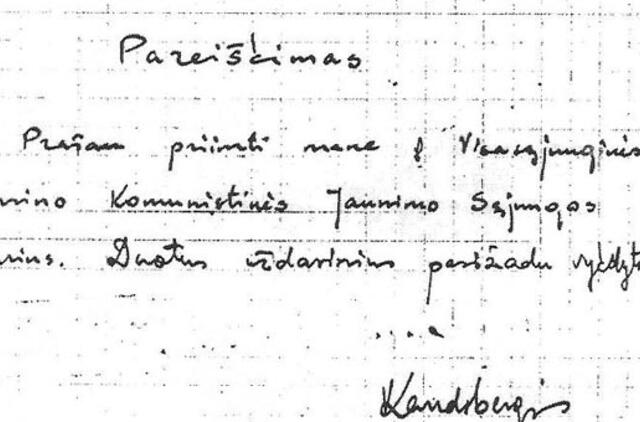 Pareiškimas
Prašau priimti mane į Visasąjunginės
nino Komunistinės Jaunimo Sąjungos
rius. Duotus uždavinius pasižadu vykdyt
....
Landsbergis